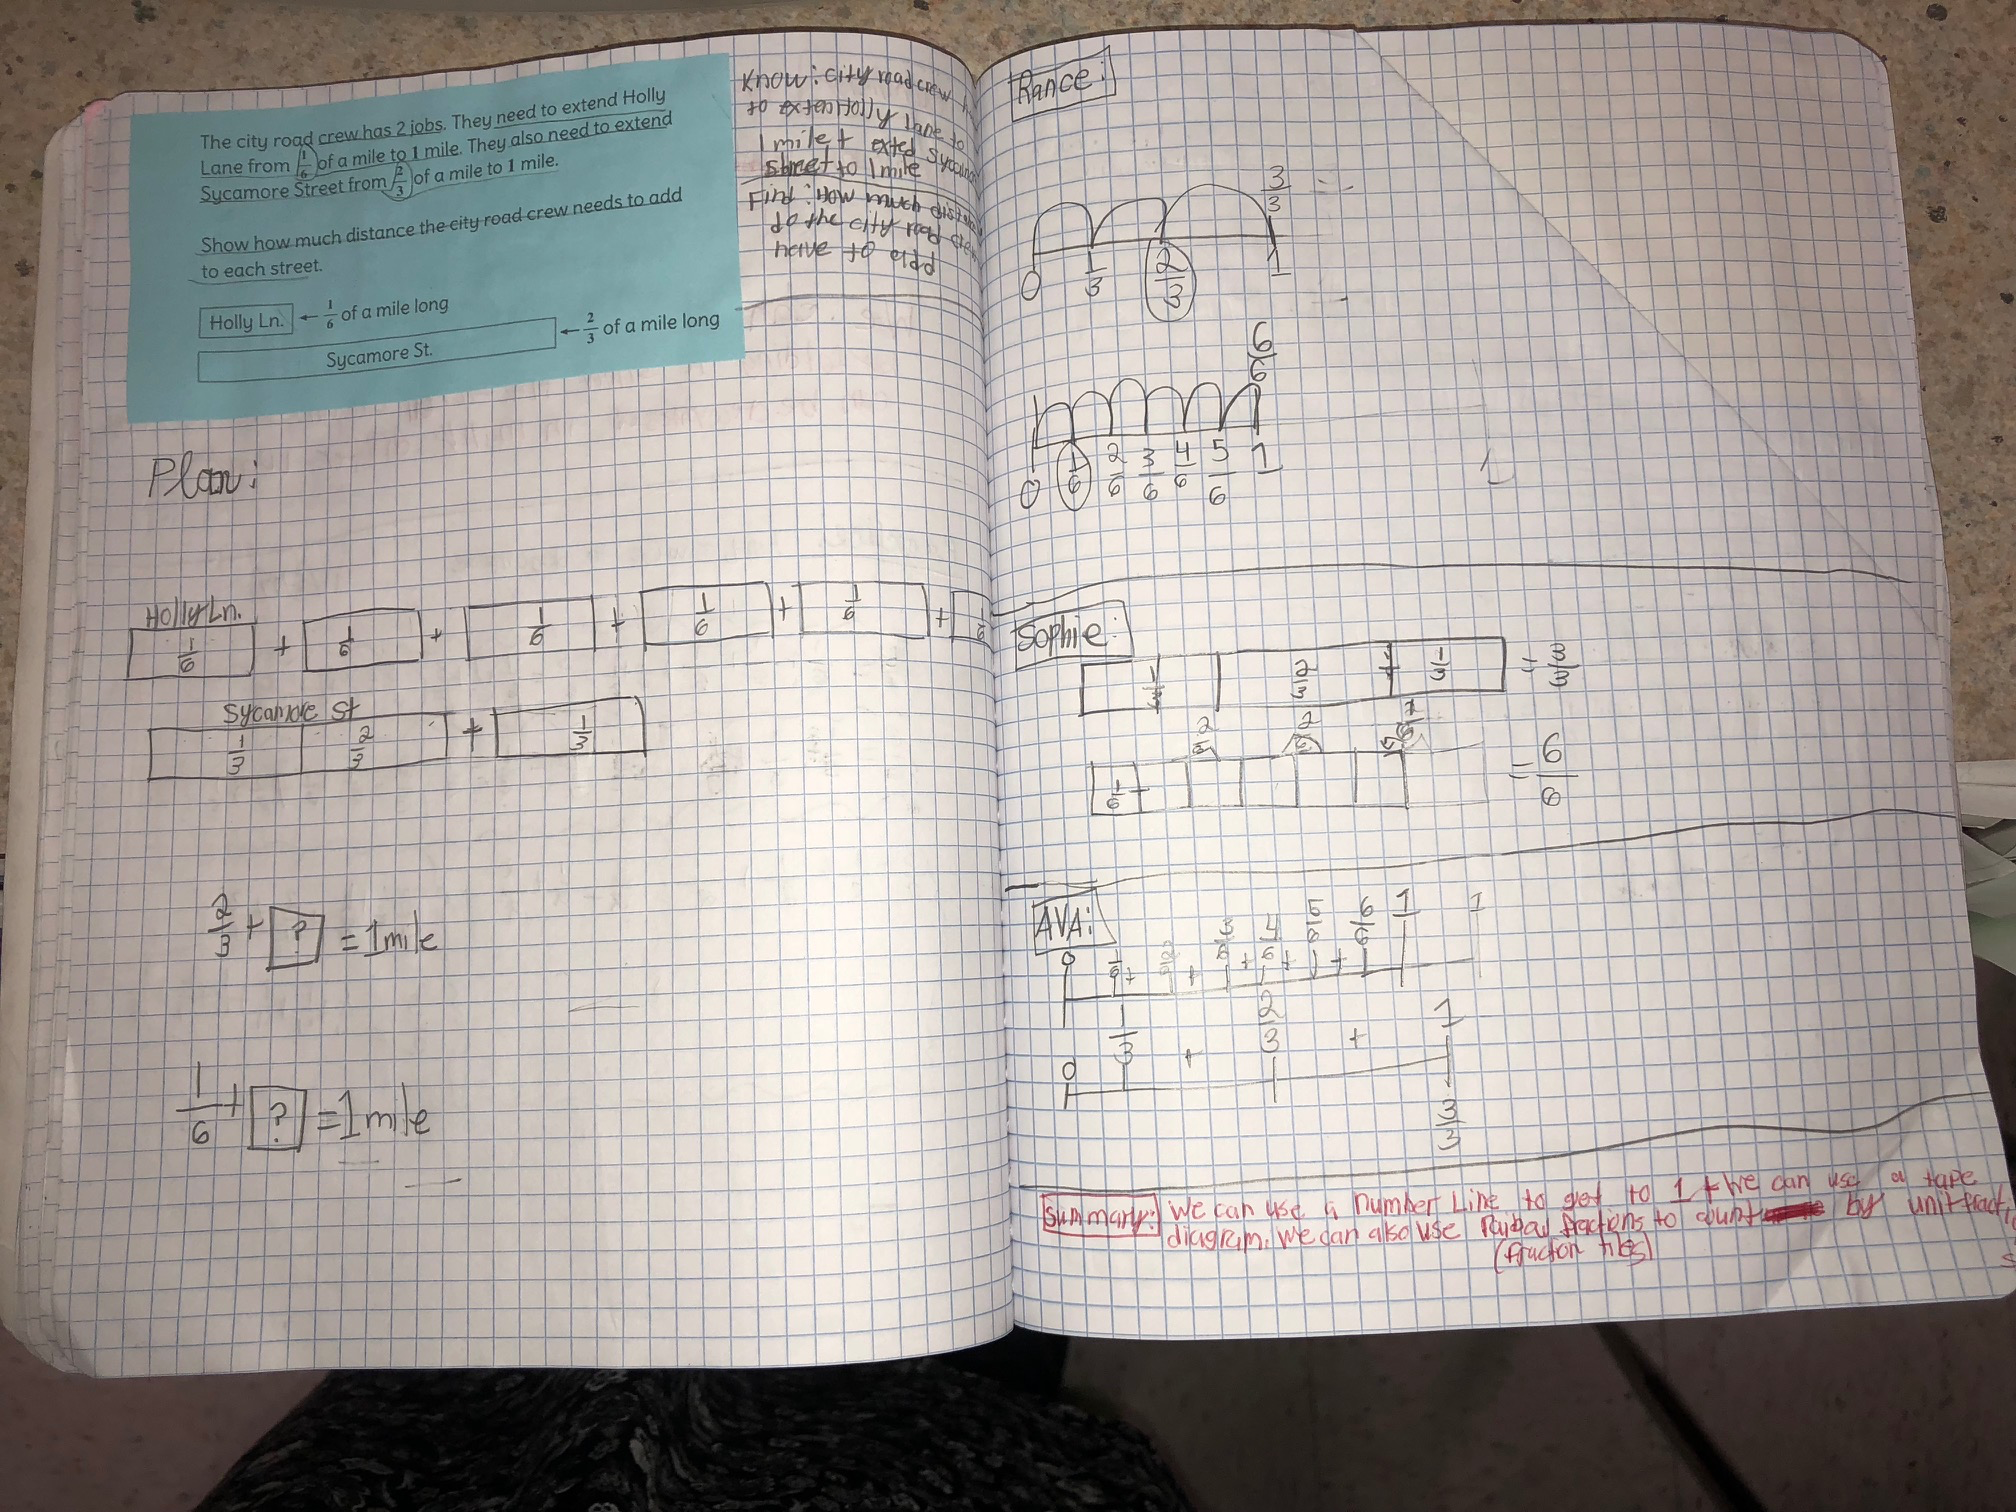 The city road crew has 2 jobs. They need to extend Holly
Lane from 1/6 of a mile to 1 mile. They also need to extend
Sycamore Street from 2/3 of a mile to 1 mile.
Show how much distance the city road crew needs to add
to each street.
Holly Ln. ← 1/6 of a mile long
Sycamore St. ← 2/3 of a mile long
Know: city road crew
to Holly lane to
1 mile + exted
Street to 1 mile
Find: How much
do the city road
have to add
Plan:
Holly Ln.
1/6 + 1/6 + 1/6 + 1/6 + 1/6 + 1/6
Sycamore St
1/3 2/3 + 1/3
2/3 + ? = 1 mile
1/6 + ? = 1 mile
Rance:
3/3 =
0 1/3 2/3 1
6/6
0 1/6 2/6 3/6 4/6 5/6 1
1
Sophie:
1/3 2/3 + 1/3 = 3/3
1/6 +
= 6/6
AVA:
0 1/6 + + 3/6 + 4/6 + 5/6 + 6/6 1 1
0 1/3 + 2/3 + 1
3/3
Summary: We can use a number Line to get to 1 + We can use a tape
diagram. We can also use fractions to count by unit
(fraction tiles)